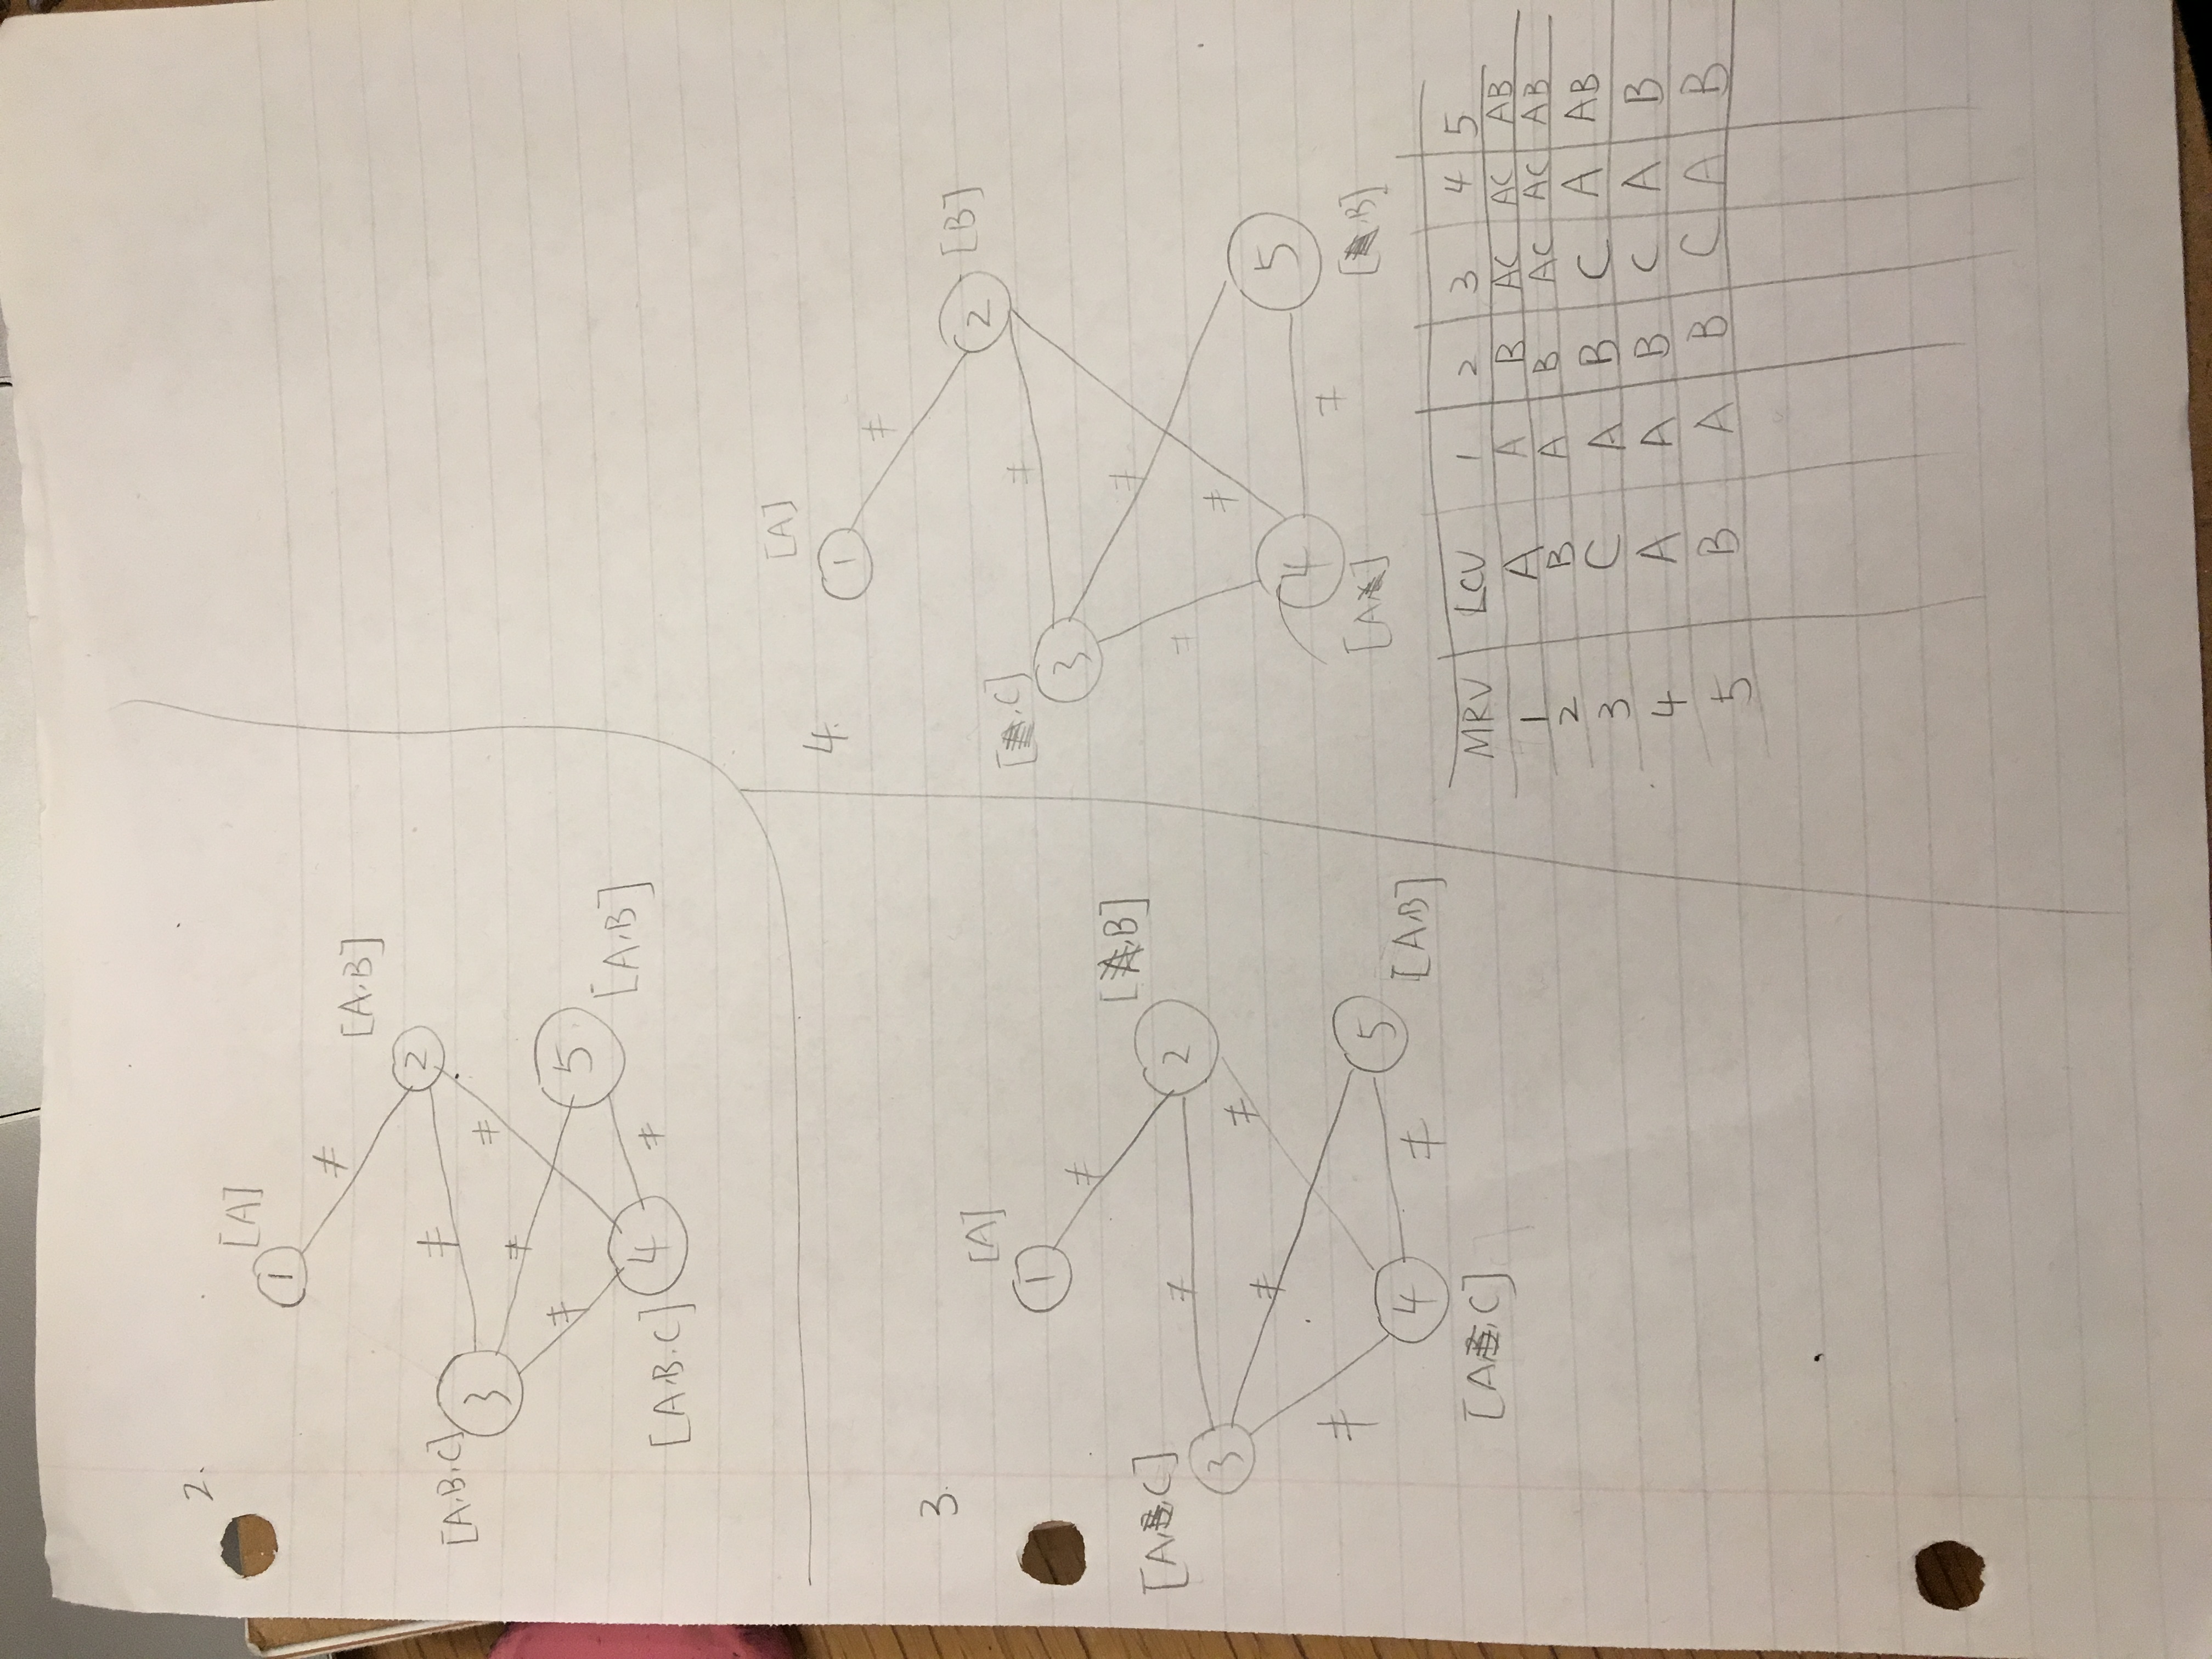 2.
[A]
1
≠
[A,B]
2
≠
[A,B,C]
3
≠
≠
≠
5
[A,B]
4
≠
[A,B,C]
3.
[A]
1
≠
[A,B]
2
[A,B,C]
≠
3
≠
≠
≠
5
[A,B]
4
≠
[A,B,C]
4.
[A]
1
≠
2
[B]
[A,C]
≠
3
≠
≠
≠
5
4
≠
[A]
[A,B]
MRV LCV 1 2 3 4 5
1 A A B AC AC AB
2 B A B AC AC AB
3 C A B C A AB
4 A A B C A B
5 B A B C A B